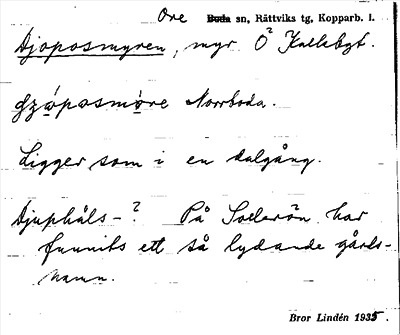 Ore
Boda sn, Rättviks tg, Kopparb. l.
Djoposmyren, myr O² Kallebgt.
gzóposmòre Norrboda.
Ligger som i en dalgång.
Djuphåls-? På Sollerön har
funnits ett så lydande gårds-
namn.
Bror Lindén 1935.